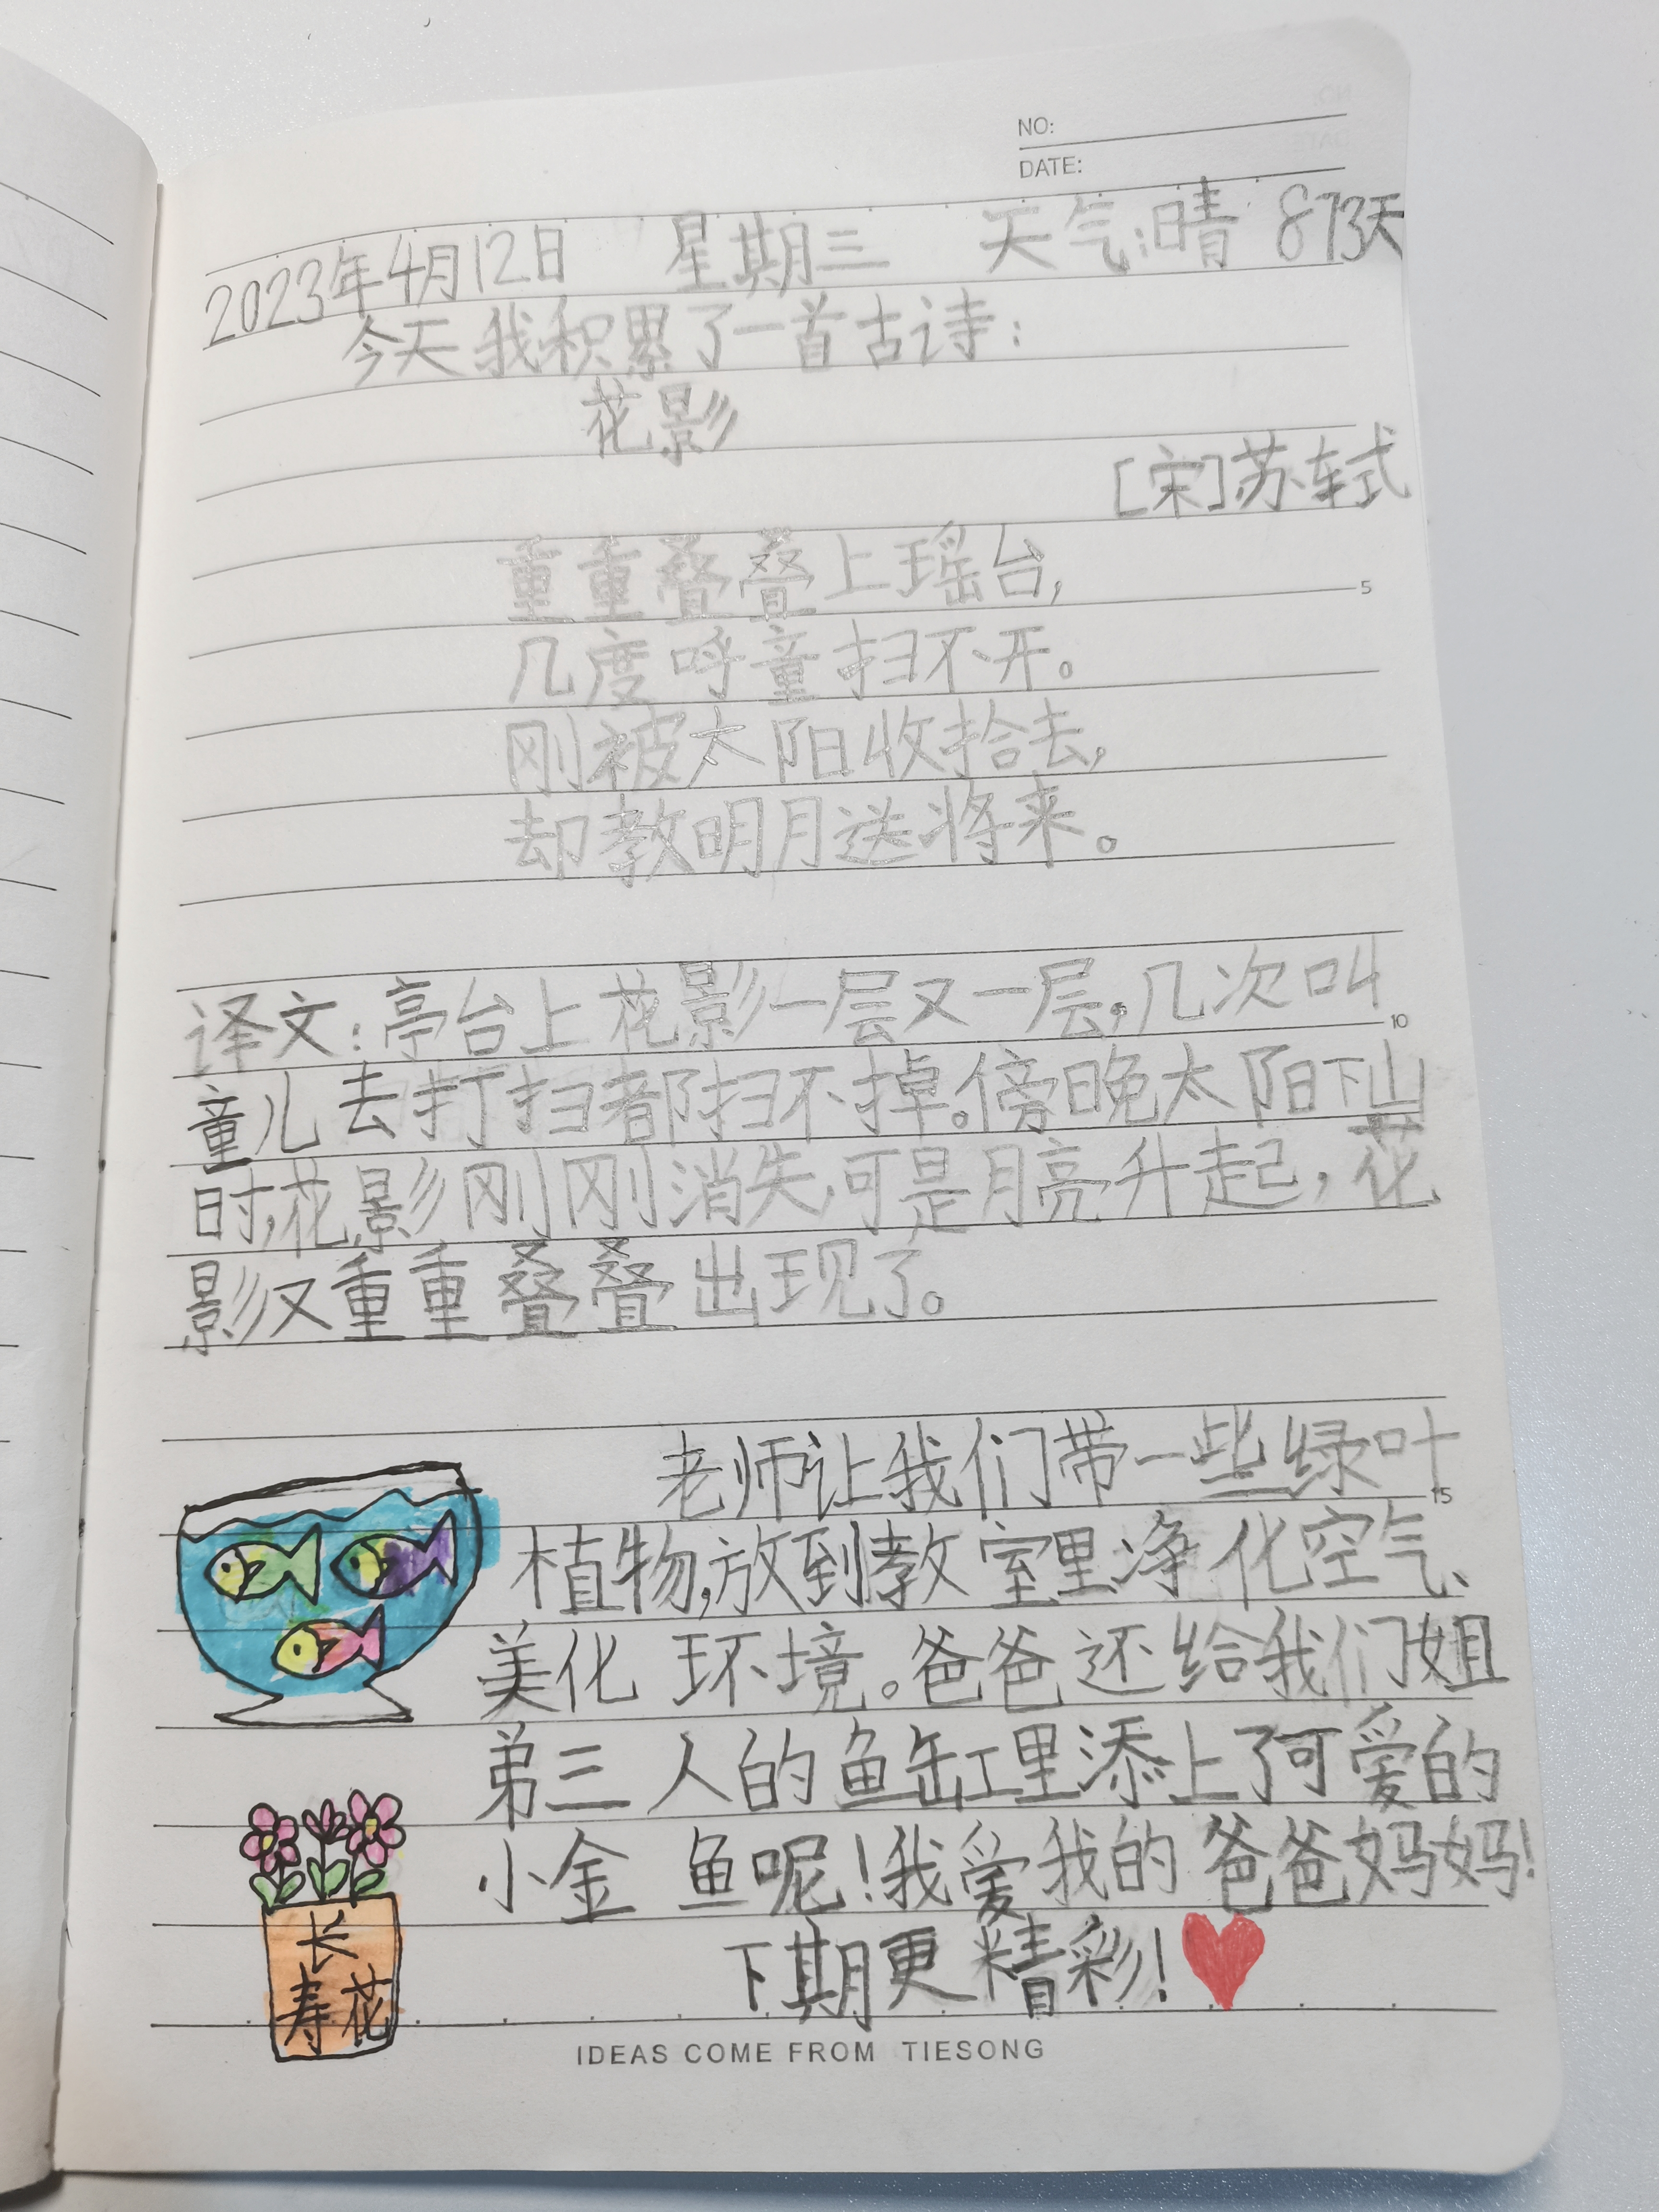 NO:
DATE:
2023年4月12日 星期三 天气:晴 873天
今天我积累了一首古诗:
花影
[宋]苏轼
重重叠叠上瑶台,
5
几度呼童扫不开。
刚被太阳收拾去,
却教明月送将来。
译文:亭台上花影一层又一层,几次叫
10
童儿去打扫都扫不掉。傍晚太阳下山
时,花影刚刚消失,可是月亮升起,花
影又重重叠叠出现了。
老师让我们带一些绿叶
15
植物,放到教室里净化空气、
美化环境。爸爸还给我们姐
弟三人的鱼缸里添上了可爱的
小金鱼呢!我爱我的爸爸妈妈!
下期更精彩!
长
寿花
IDEAS COME FROM TIESONG